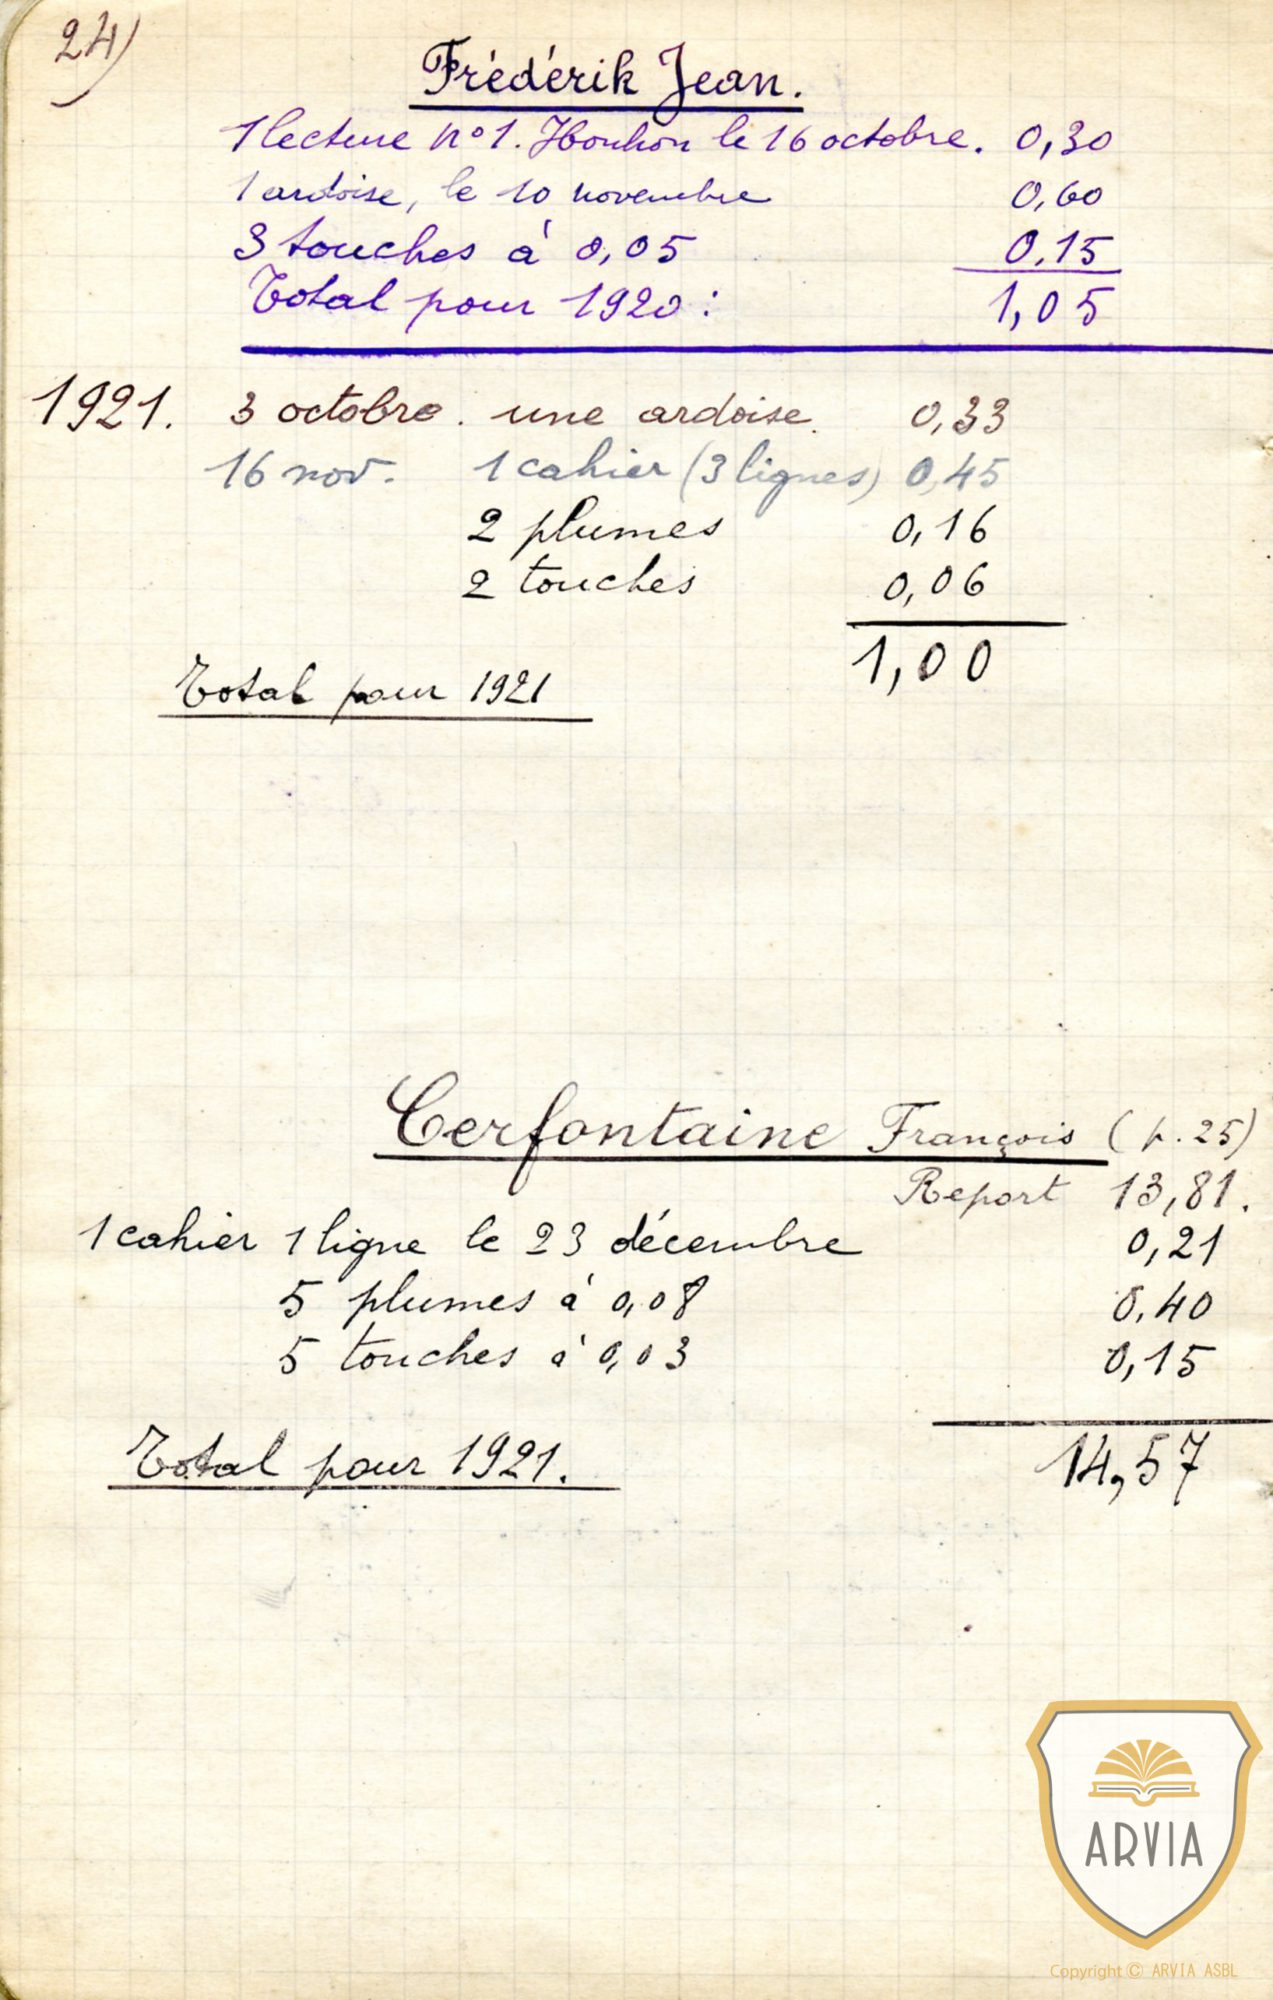 24)
Frédérik Jean.
1 lecture nº 1. Houhon le 16 octobre. 0,30
1 ardoise, le 10 novembre 0,60
3 touches à 0,05 0,15
Total pour 1920: 1,05
1921. 3 octobre. une ardoise. 0,33
16 nov. 1 cahier (3 lignes) 0,45
2 plumes 0,16
2 touches 0,06
1,00
Total pour 1921
Cerfontaine François (p. 25)
Report 13,81.
1 cahier 1 ligne le 23 décembre 0,21
5 plumes à 0,08 0,40
5 touches à 0,03 0,15
Total pour 1921. 14,57
ARVIA
Copyright © ARVIA ASBL